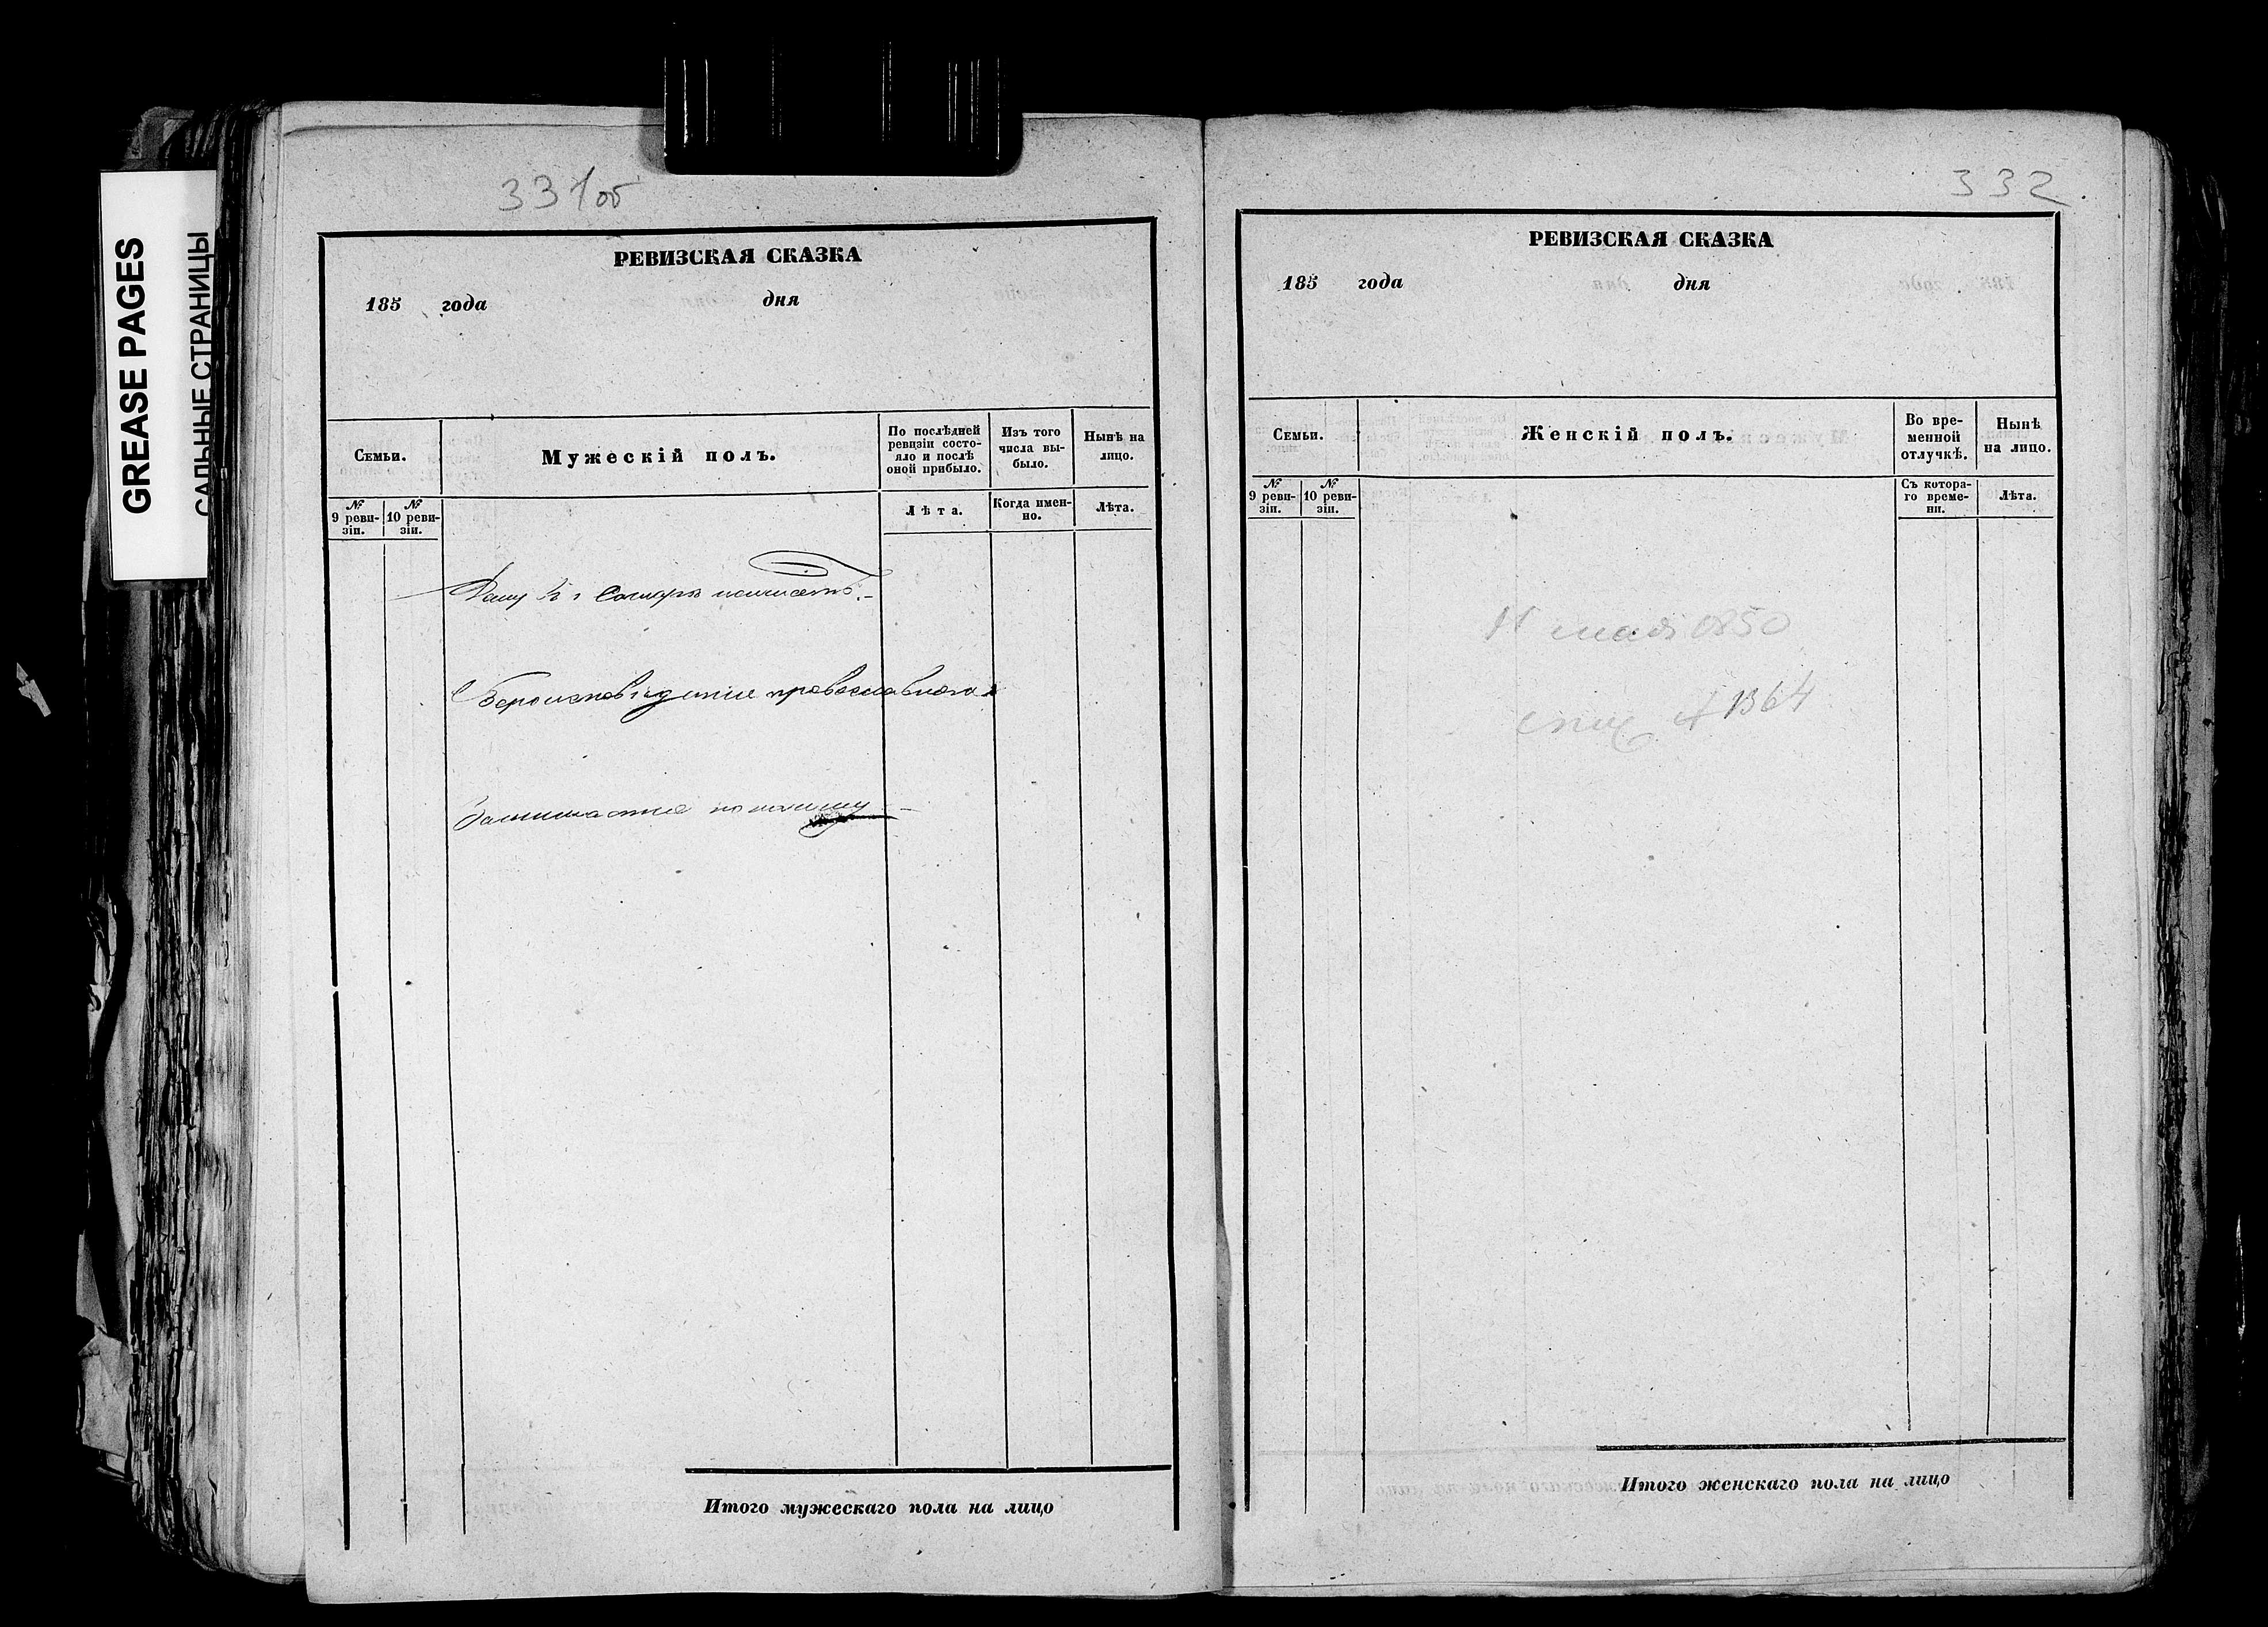 GREASE PAGES
САЛЬНЫЕ СТРАНИЦЫ
331об
РЕВИЗСКАЯ СКАЗКА
185 года дня
Семьи.
Мужескій полъ.
По послѣдней ревизіи состо-
яло и послѣ
оной прибыло.
Изъ того
числа вы-
было.
Нынѣ на
лицо.
№ 9 реви-
зіи.
№ 10 реви-
зіи.
Лѣта.
Когда имен-
но.
Лѣта.
Вероисповѣданіе православнаго
Итого мужескаго пола на лицо
332
РЕВИЗСКАЯ СКАЗКА
185 года дня
Семьи.
Женскій полъ.
Во вре-
менной
отлучкѣ.
Нынѣ
на лицо.
№ 9 реви-
зіи.
№ 10 реви-
зіи.
Съ котора-
го време-
ни.
Лѣта.
Итого женскаго пола на лицо